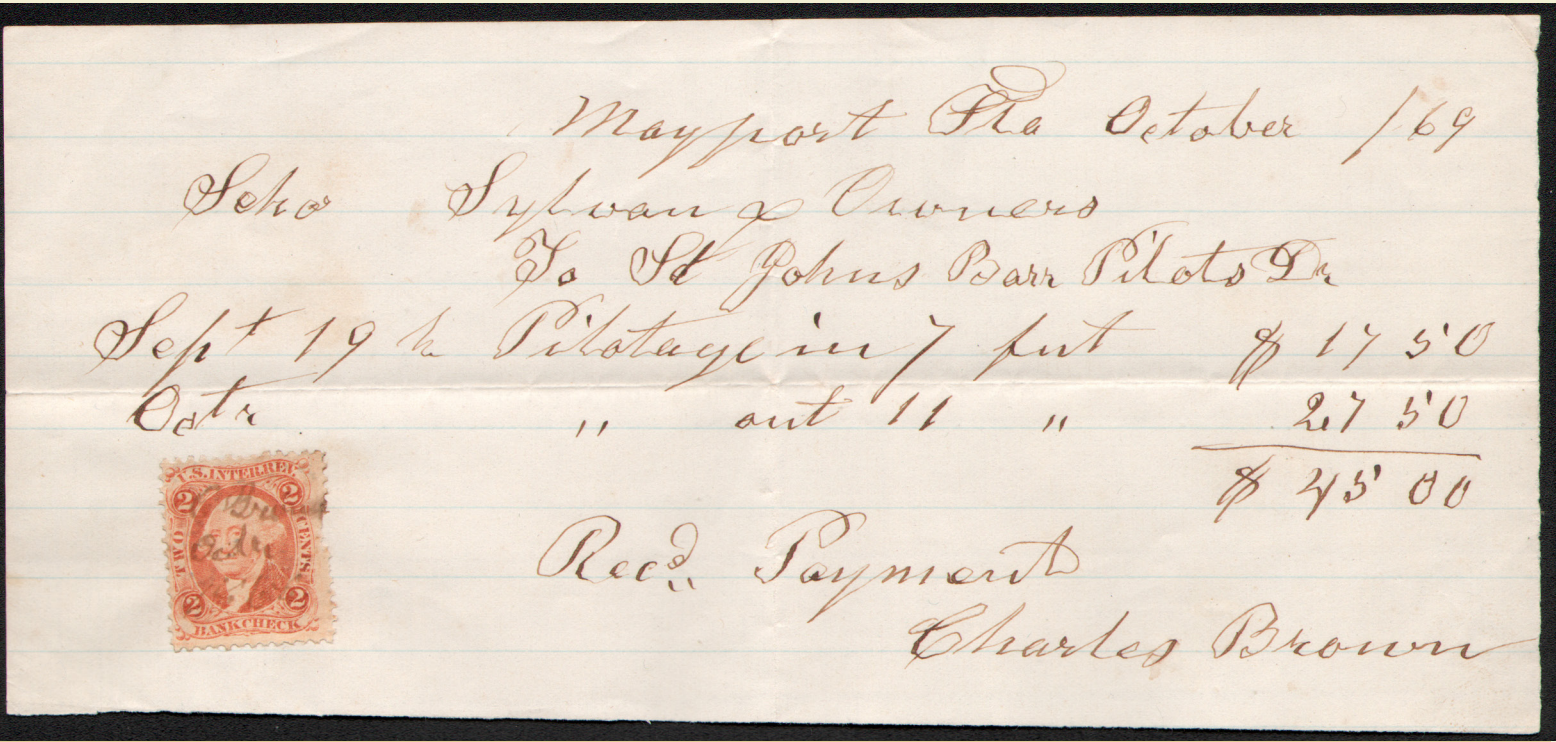 Mayport Fla October /69
Schr Sylvan & Owners
To St Johns Barr Pilots Dr
Sept 19th Pilotage in 7 feet $ 17 50
Octr " out 11 " 27 50
$ 45 00
Recd Payment
Charles Brown
U.S. INTER. REV.
2 2
C Brown
Octr
TWO CENTS
2 2
BANK CHECK